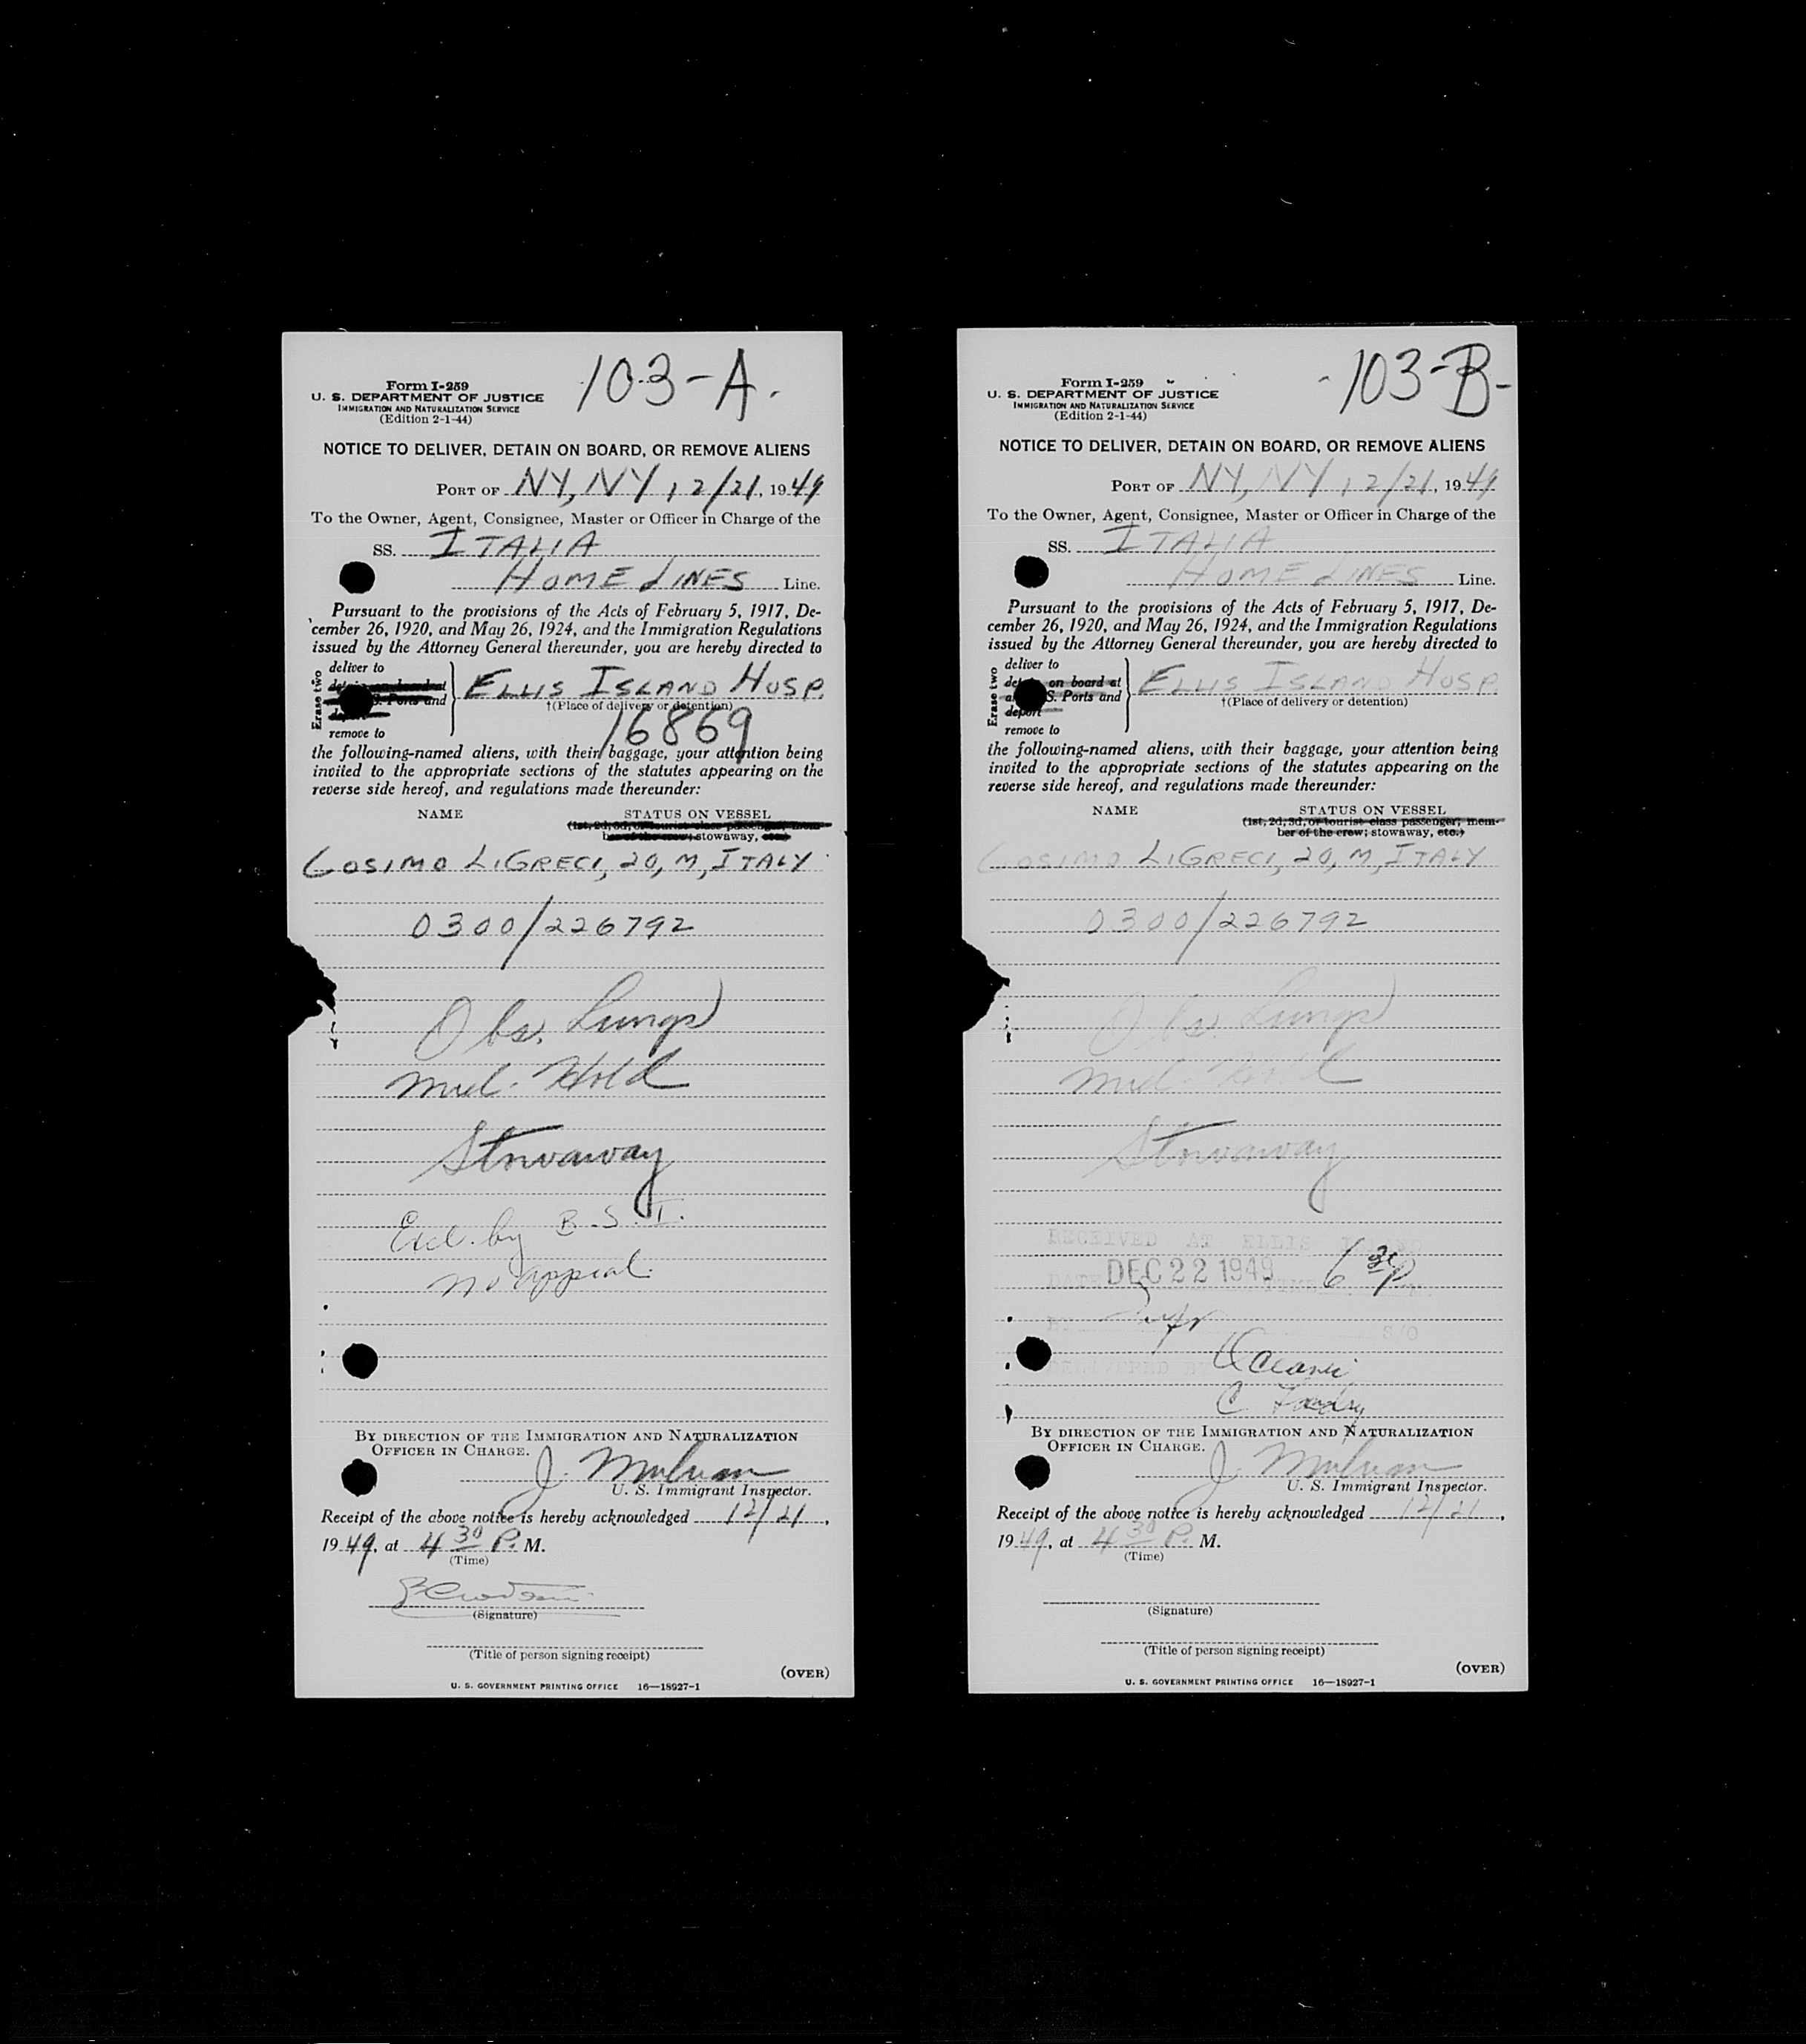 103-A.
Form I-259
U. S. DEPARTMENT OF JUSTICE
IMMIGRATION AND NATURALIZATION SERVICE
(Edition 2-1-44)
NOTICE TO DELIVER, DETAIN ON BOARD, OR REMOVE ALIENS
PORT OF NY, NY, 12/21, 1949
To the Owner, Agent, Consignee, Master or Officer in Charge of the
SS. ITALIA
HOME LINES Line.
Pursuant to the provisions of the Acts of February 5, 1917, De-
cember 26, 1920, and May 26, 1924, and the Immigration Regulations
issued by the Attorney General thereunder, you are hereby directed to
Erase two
deliver to
detain on board at
S. Ports and
deport
remove to
ELLIS ISLAND HOSP.
†(Place of delivery or detention)
16869
the following-named aliens, with their baggage, your attention being
invited to the appropriate sections of the statutes appearing on the
reverse side hereof, and regulations made thereunder:
NAME STATUS ON VESSEL
(1st, 2d, 3d, or tourist class passenger, mem-
ber of the crew; stowaway, etc.)
COSIMO LIGRECI, 20, M, ITALY
0300/226792
Obs. Lungs
Med. Hold
Stowaway
Excl. by B.S.I.
No appeal.
BY DIRECTION OF THE IMMIGRATION AND NATURALIZATION
OFFICER IN CHARGE.
J.
U. S. Immigrant Inspector.
Receipt of the above notice is hereby acknowledged 12/21,
1949, at 4 30 P. M.
(Time)
(Signature)
(Title of person signing receipt)
(OVER)
U. S. GOVERNMENT PRINTING OFFICE 16—18927-1
-103-B-
Form I-259
U. S. DEPARTMENT OF JUSTICE
IMMIGRATION AND NATURALIZATION SERVICE
(Edition 2-1-44)
NOTICE TO DELIVER, DETAIN ON BOARD, OR REMOVE ALIENS
PORT OF NY, NY, 12/21, 1949
To the Owner, Agent, Consignee, Master or Officer in Charge of the
SS. ITALIA
HOME LINES Line.
Pursuant to the provisions of the Acts of February 5, 1917, De-
cember 26, 1920, and May 26, 1924, and the Immigration Regulations
issued by the Attorney General thereunder, you are hereby directed to
Erase two
deliver to
on board at
S. Ports and
deport
remove to
ELLIS ISLAND HOSP.
†(Place of delivery or detention)
the following-named aliens, with their baggage, your attention being
invited to the appropriate sections of the statutes appearing on the
reverse side hereof, and regulations made thereunder:
NAME STATUS ON VESSEL
(1st, 2d, 3d, or tourist class passenger, mem-
ber of the crew; stowaway, etc.)
COSIMO LIGRECI, 20, M, ITALY
0300/226792
Obs. Lungs
Med. Hold
Stowaway
RECEIVED AT ELLIS
DATE DEC 22 1949 TIME 6
BY S/O
DELIVERED BY
C.
BY DIRECTION OF THE IMMIGRATION AND NATURALIZATION
OFFICER IN CHARGE.
J.
U. S. Immigrant Inspector.
Receipt of the above notice is hereby acknowledged 12/21,
1949, at 4 30 P. M.
(Time)
(Signature)
(Title of person signing receipt)
(OVER)
U. S. GOVERNMENT PRINTING OFFICE 16—18927-1